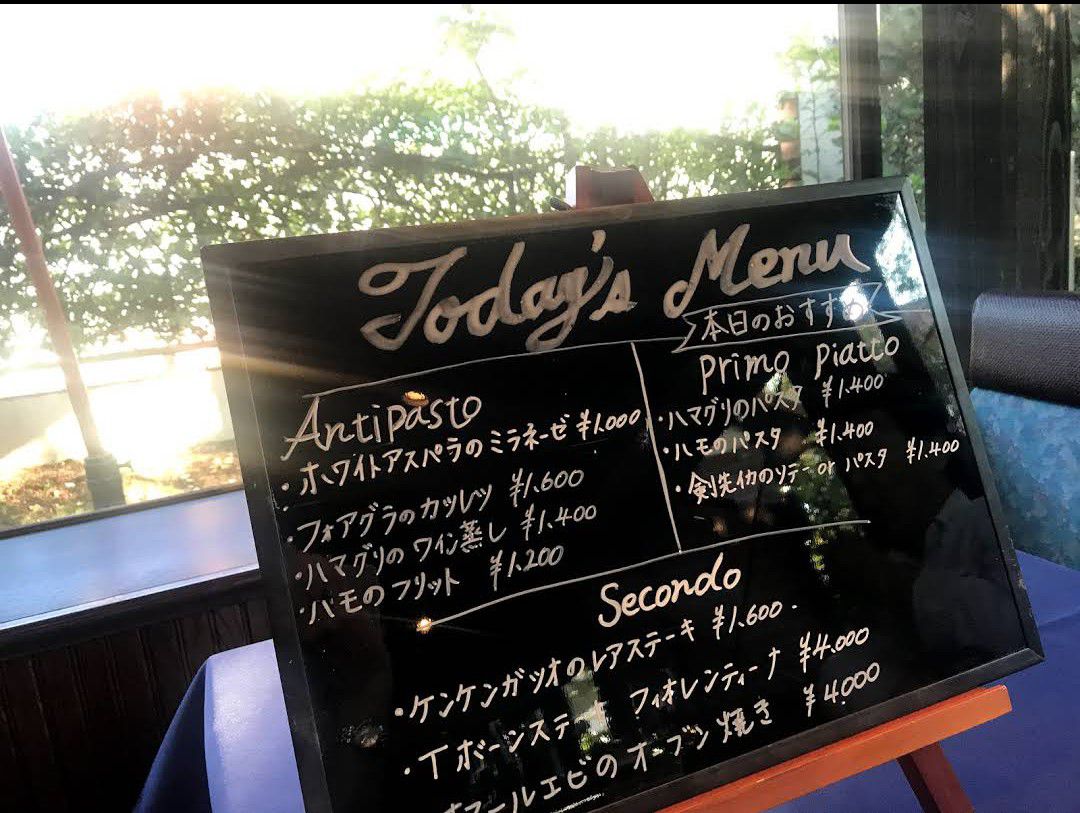 Today's Menu
本日のおすすめ
Antipasto
・ホワイトアスパラのミラネーゼ ¥1.000
・フォアグラのカツレツ ¥1.600
・ハマグリのワイン蒸し ¥1.400
・ハモのフリット ¥1.200
Primo Piatto
・ハマグリのパスタ ¥1.400
・ハモのパスタ ¥1.400
・剣先イカのソテー or パスタ ¥1.400
Secondo
・ケンケンガツオのレアステーキ ¥1.600.
・Tボーンステーキ フィオレンティーナ ¥4.000
オマールエビのオーブン焼き ¥4.000